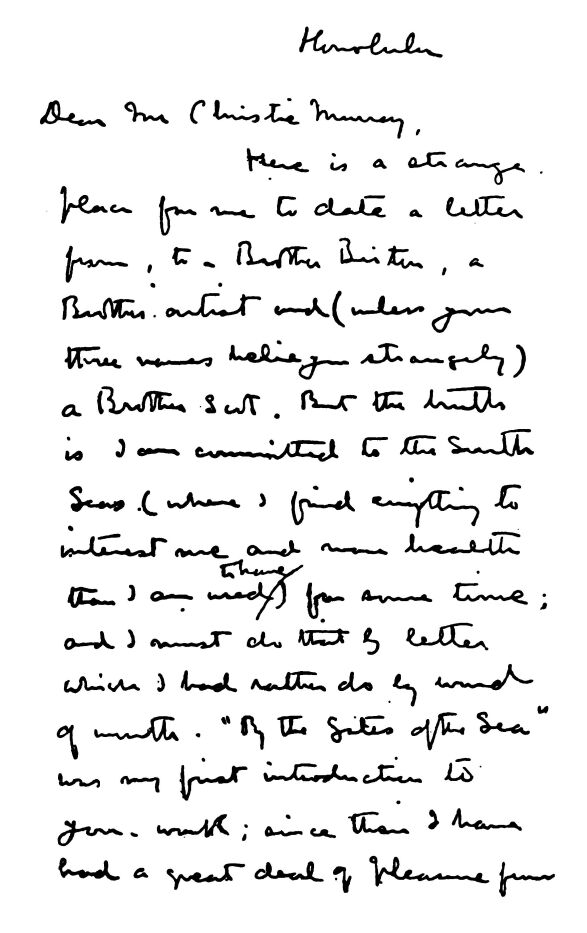 Honolulu
Dear Mr Christie Murray,
Here is a strange
place for me to date a letter
from, to a Brother Briton, a
Brother artist and (unless your
three names belie you strangely)
a Brother Scot. But the truth
is I am committed to the South
Seas (where I find everything to
interest me and more health
to have
than I am used) for some time;
and I must do that by letter
which I had rather do by word
of mouth. "By the Gates of the Sea"
was my first introduction to
your work; since then I have
had a great deal of pleasure from